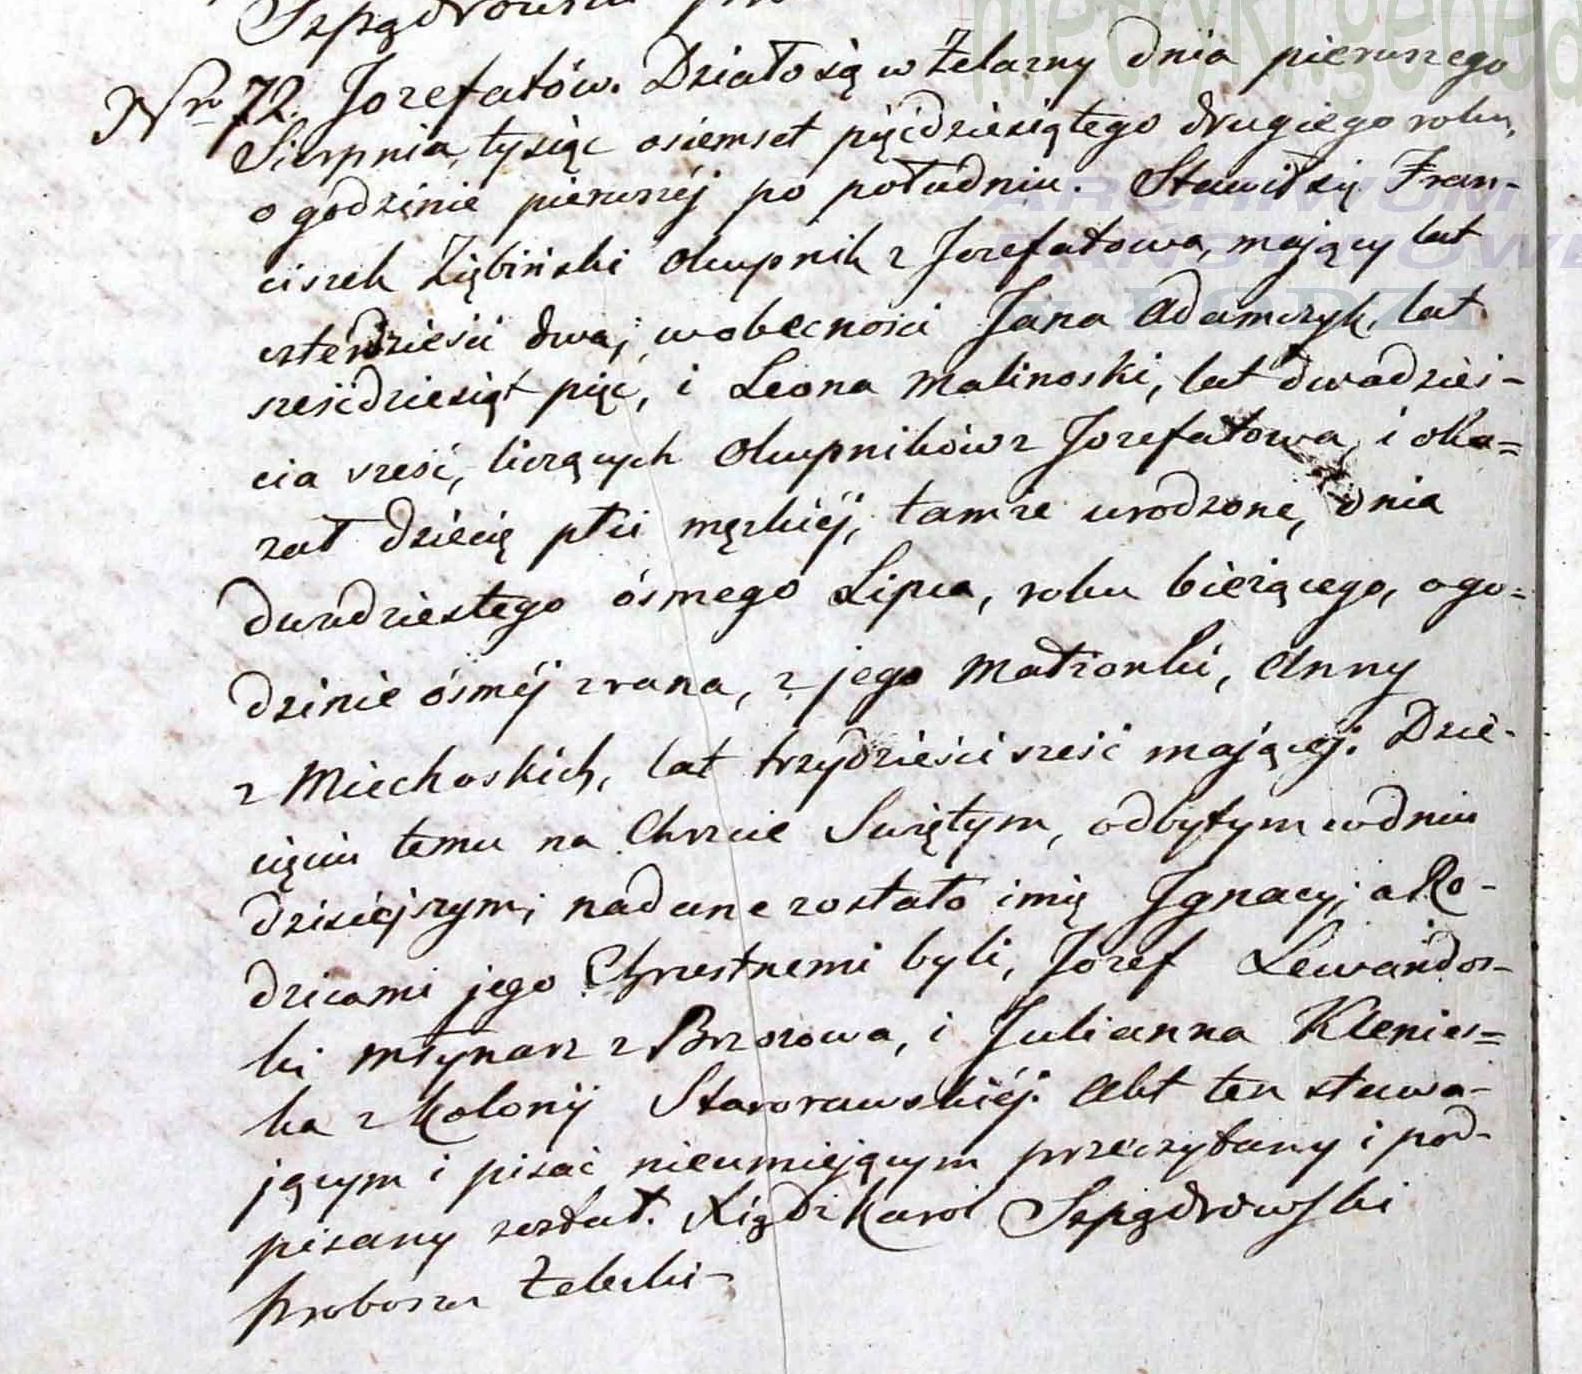 Nro 72. Jozefatów. Działo się w Żelazny dnia pierwszego
Sierpnia, tysiąc osiemset pięćdziesiątego drugiego roku,
o godzinie pierwszéj po południu. Stawił się Fran-
ciszek Ziębiński Okupnik z Jozefatowa, mający lat
czterdzieści dwa; w obecności Jana Adamczyk, lat
sześćdziesiąt pięć, i Leona Malinoski, lat dwadzieś-
cia sześć, liczących Okupników z Jozefatowa, i oka=
zał dziécię płci męzkiéj, tamże urodzone, dnia
dwudziestego ósmego Lipca, roku bieżącego, o go=
dzinie ósméj z rana, z jego Małżonki, Anny
z Miechoskich, lat trzydzieści sześć mającéj. Dzie-
cięciu temu na Chrzcie Swiętym, odbytym w dniu
dzisiejszym; nadane zostało imię Ignacy; a Ro-
dzicami jego Chrzestnemi byli, Józef Lewandos-
ki Młynarz z Brzozowa, i Julianna Klenies=
ka z Kolonij Starorawskiéj. Akt ten stawa-
jącym i pisać nieumiejącym przeczytany i pod-
pisany został. Xiądz Karol Szpądrowski
Proboszcz Żelecki
ARCHIWUM